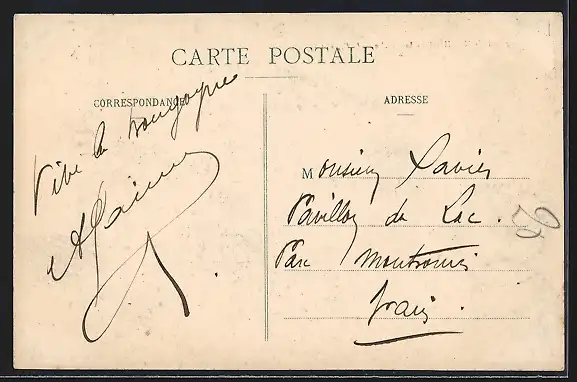 CARTE POSTALE
CORRESPONDANCE
ADRESSE
Vive la bourgogne
Monsieur Xavier
Pavillon du Lac.
Parc Montsouris
Paris.